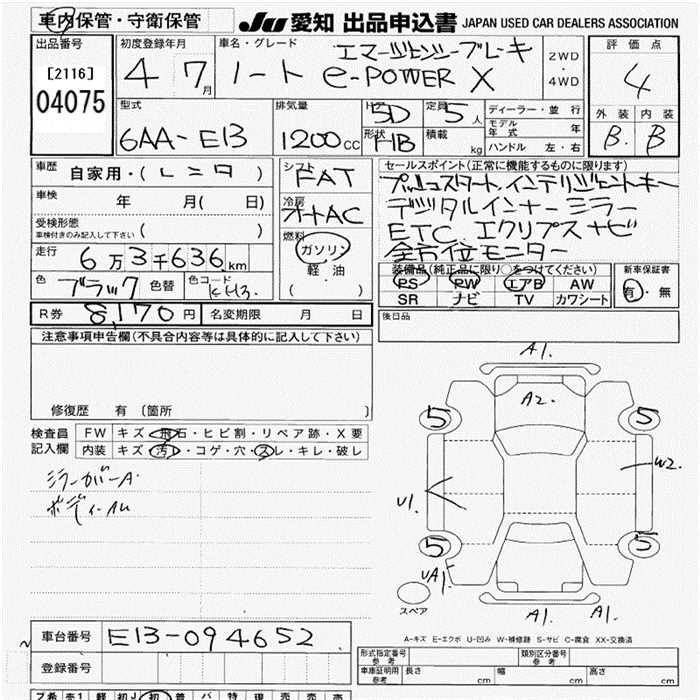 車内保管・守衛保管
JU 愛知 出品申込書 JAPAN USED CAR DEALERS ASSOCIATION
出品番号 初度登録年月 車名・グレード エマージェンシーブレーキ 2WD 評価点
[2116] 4 7月 ノート e-POWER X ・ 4
04075 4WD
型式 排気量 ドア 5D 定員 5人 ディーラー・並行 外装 内装
6AA-E13 1200cc 形状 HB 積載 kg モデル年式 年 B. B
ハンドル 左・右
車歴 自家用・(レンタ) シフト FAT セールスポイント(正常に機能するものに限ります)
車検 年 月( 日) 冷房 オートAC プッシュスタート.インテリジェントキー
受検形態 ( ) デジタルインナーミラー
車検付きのみ記入して下さい 燃料 ETC エクリプスナビ
走行 6万3千636km ガソリン 全方位モニター
色 ブラック 色替 色コード KH3 軽油 装備品(純正品に限り○をつけてください) 新車保証書
( ・ ) PS PW エアB AW 有・無
SR ナビ TV カワシート
R券 8,170円 名変期限 月 日 後日品
注意事項申告欄(不具合内容等は具体的に記入して下さい)
修復歴 有 〔箇所 〕
検査員 FW キズ・飛石・ヒビ割・リペア跡・X要
記入欄 内装 キズ・汚レ・コゲ・穴・スレ・キレ・破レ
ミラーカバーA
A1.
A2.
5 5
W2
U1.
5 5
UA1
スペア
A1. A1.
A-キズ E-エクボ U-凹み W-補修跡 S-サビ C-腐食 XX-交換済
車台番号 E13-094652
登録番号
形式指定番号 参考 類別区分番号 参考
車庫証明用 参考 長さ cm 幅 cm 高さ cm